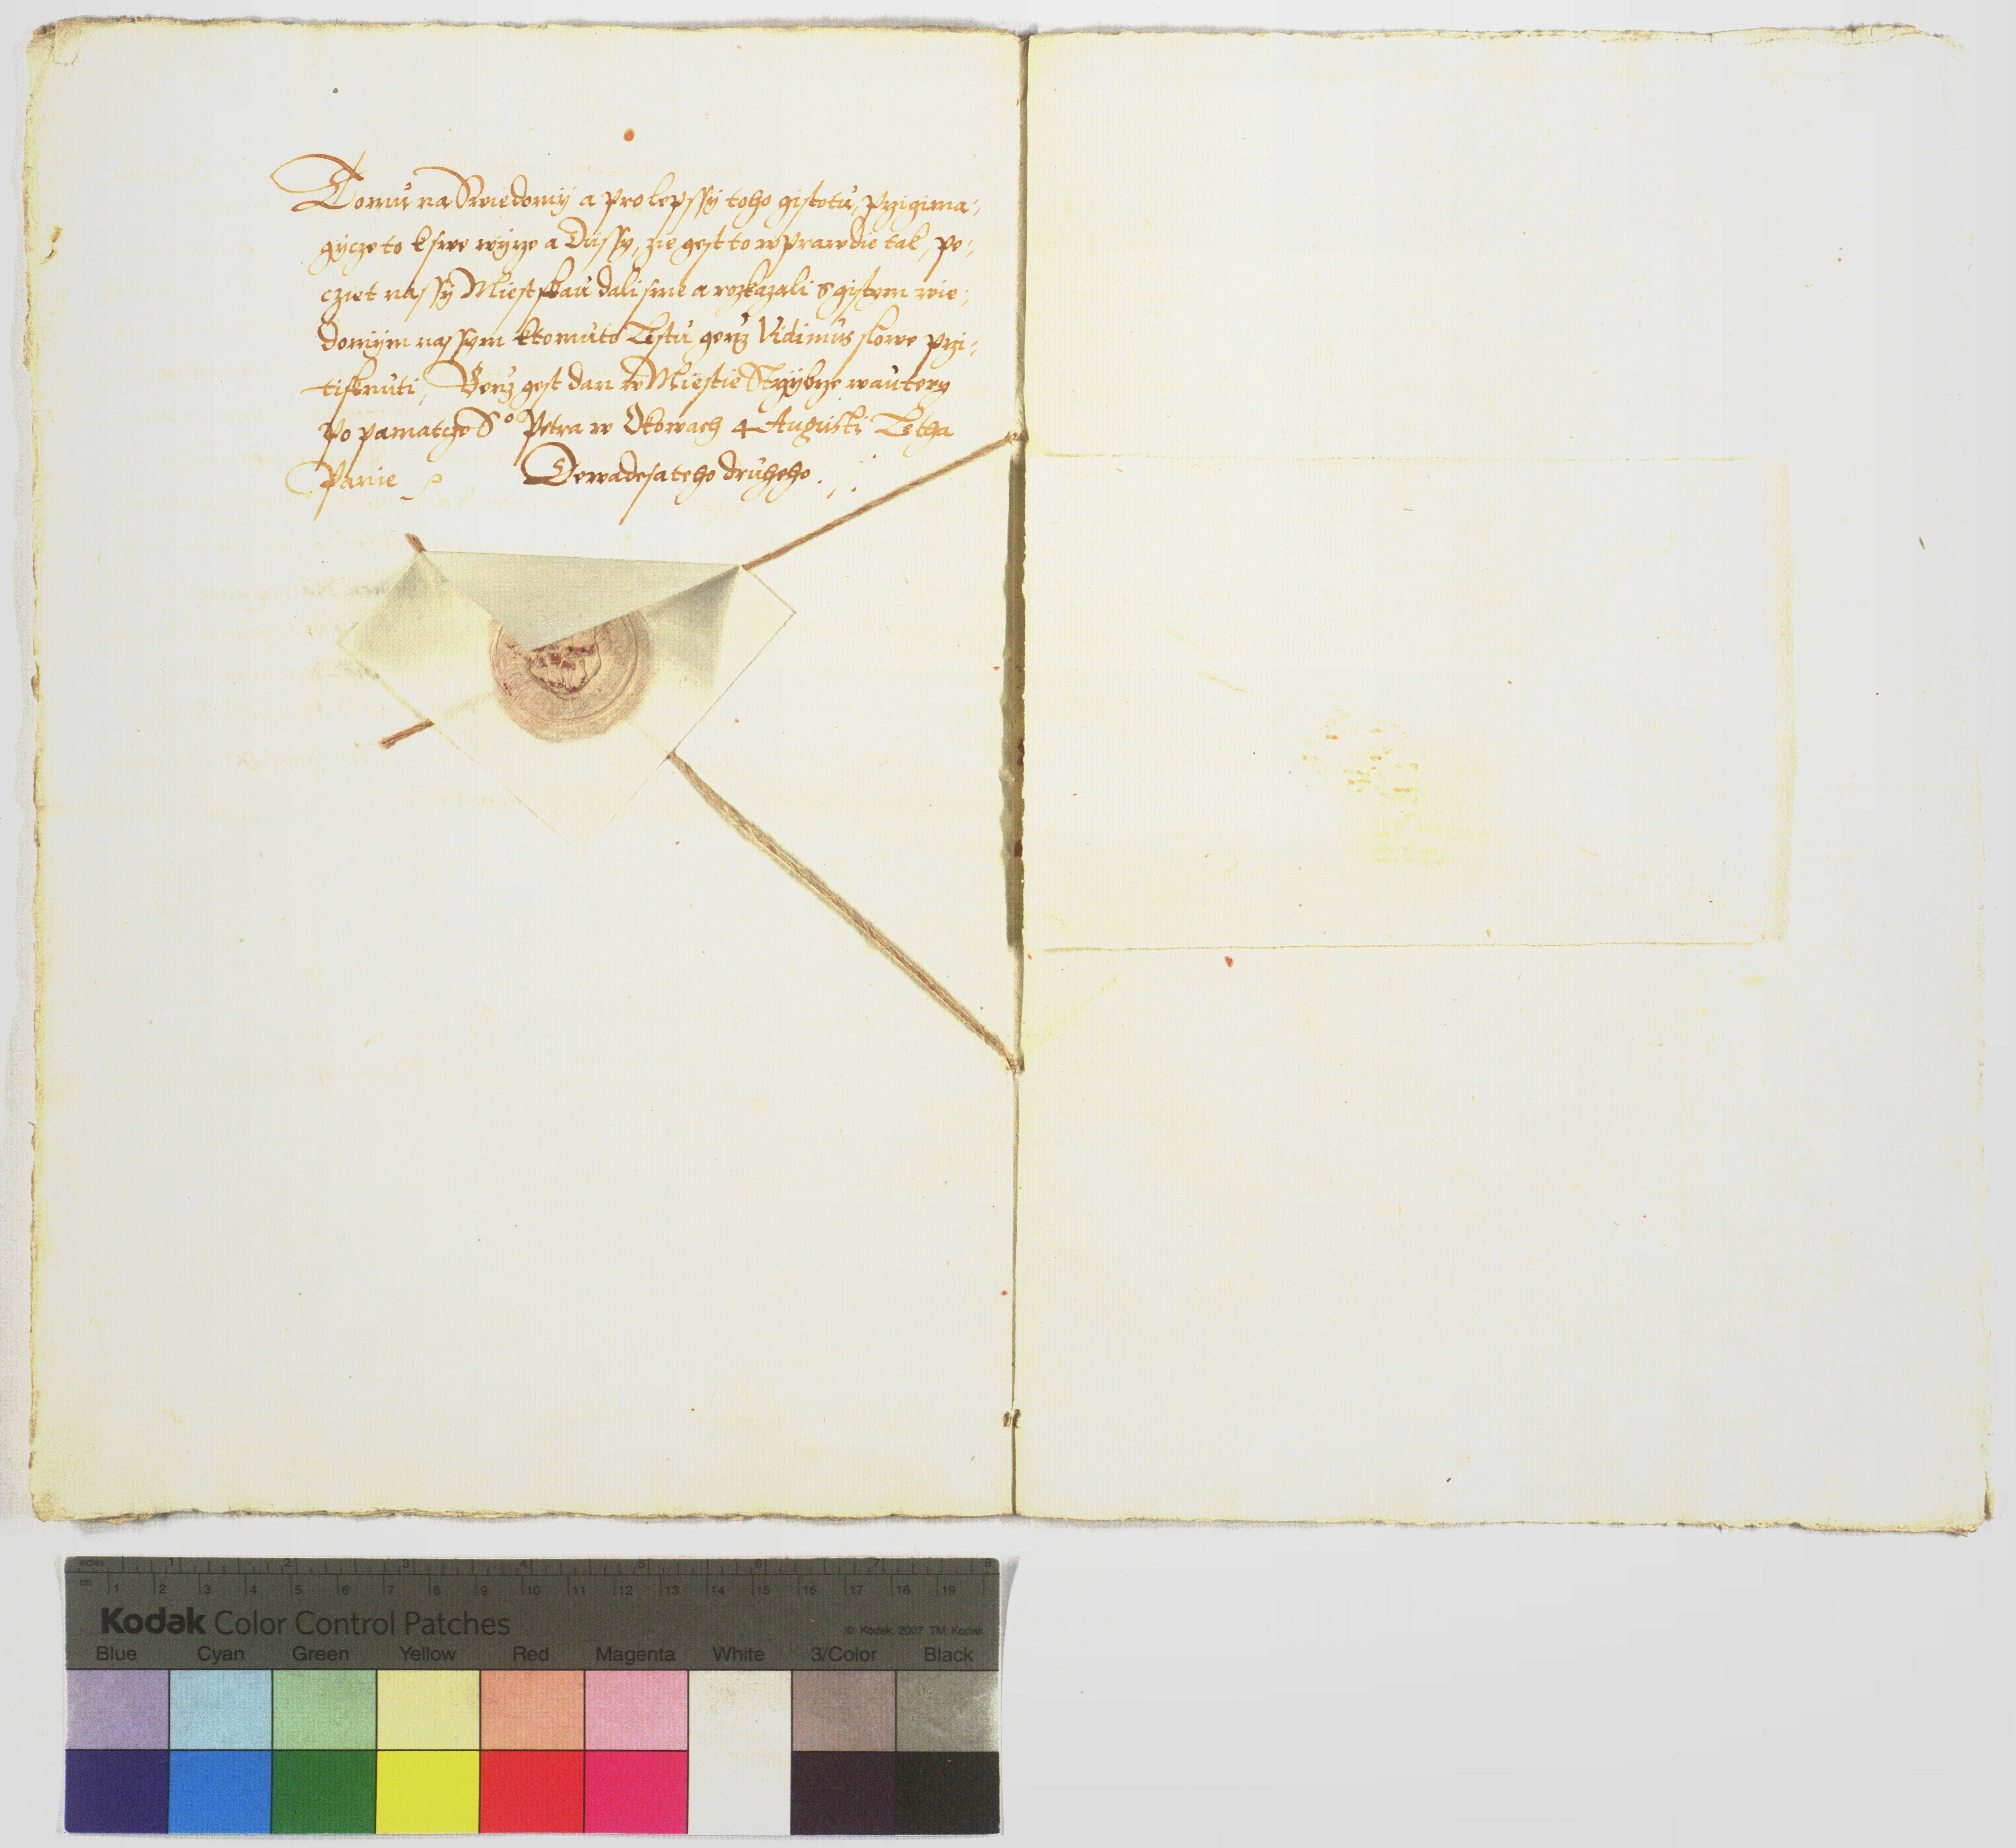 Tomu na Swiedomij a pro lepssij toho gistotu, Przigima-
gijcze to k swe wijrze a Dussy, zie gest to w prawdie tak, pe-
cziet nassij Miestskau dali sme a rozkazali s gistem wie-
domijm nassym k tomuto Listu genz Vidimus slowe przi-
tisknuti, Genz gest dan w Miestie Strzijbrze w autery
Po pamatcze S° Petra w Okowach 4 Augusti Letha
Panie Dewadesateho druheho.
inches 1 2 3 4 5 6 7 8
cm 1 2 3 4 5 6 7 8 9 10 11 12 13 14 15 16 17 18 19
Kodak Color Control Patches
© Kodak, 2007 TM: Kodak
Blue Cyan Green Yellow Red Magenta White 3/Color Black